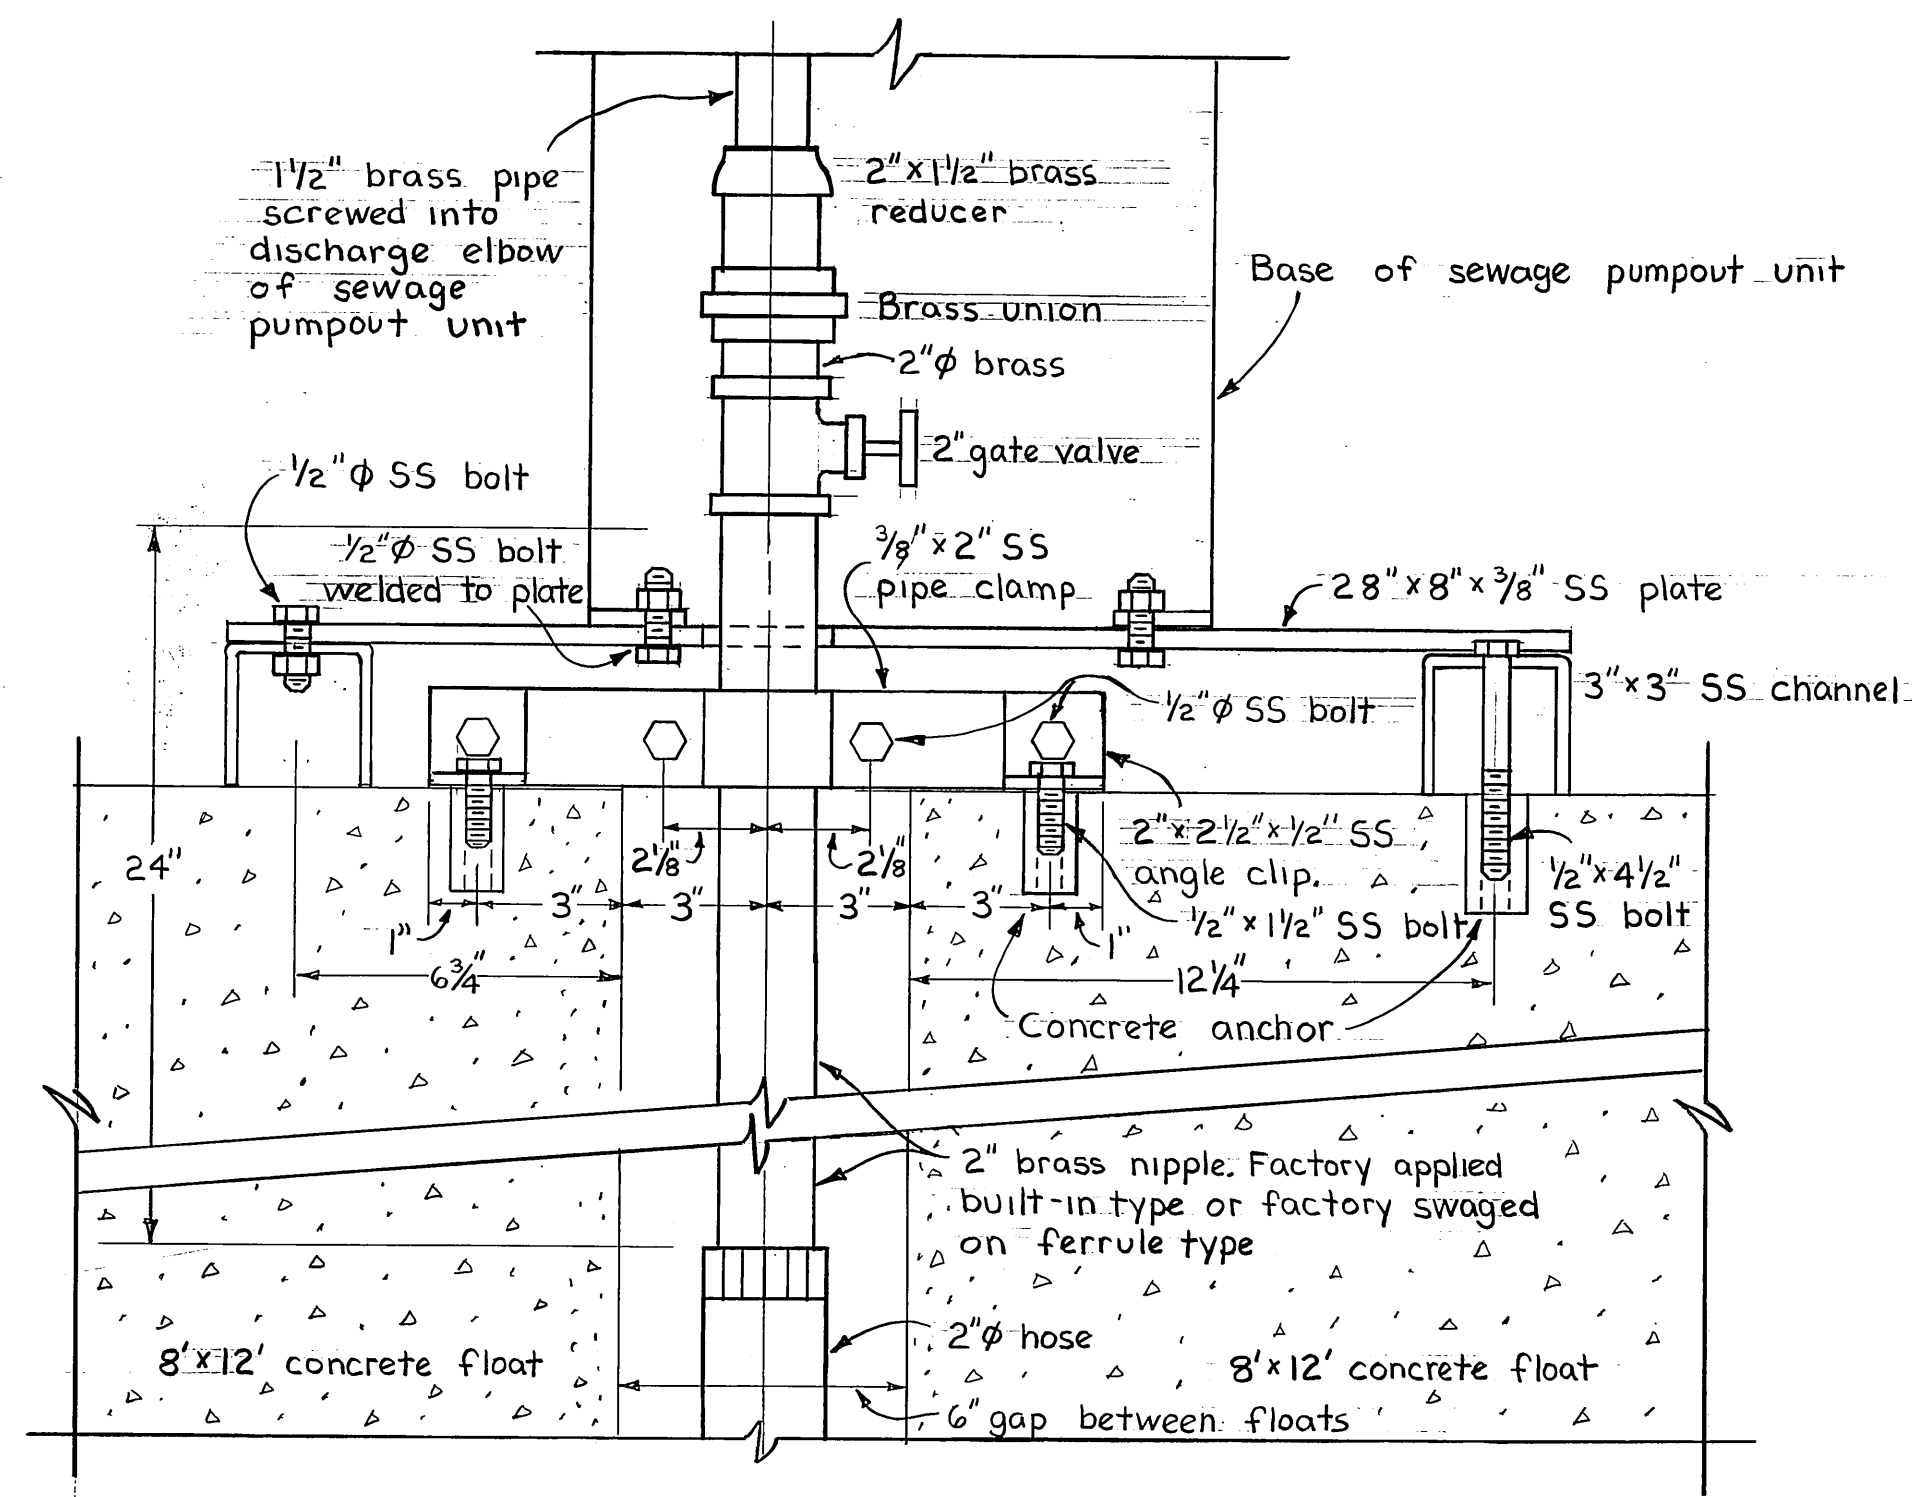 1 1/2" brass pipe
screwed into
discharge elbow
of sewage
pumpout unit
2"x1 1/2" brass
reducer
Base of sewage pumpout unit
Brass union
2"ϕ brass
2" gate valve
1/2"ϕ SS bolt
1/2"ϕ SS bolt
welded to plate
3/8"x2" SS
pipe clamp
28"x8"x3/8" SS plate
3"x3" SS channel
1/2"ϕ SS bolt
24"
2 1/8"
2 1/8"
2"x2 1/2"x1/2" SS
angle clip.
1/2"x4 1/2"
SS bolt
3"
3"
3"
3"
1"
1"
1/2"x1 1/2" SS bolt
6 3/4"
12 1/4"
Concrete anchor
2" brass nipple. Factory applied
built-in type or factory swaged
on ferrule type
2"ϕ hose
8'x12' concrete float
8'x12' concrete float
6" gap between floats